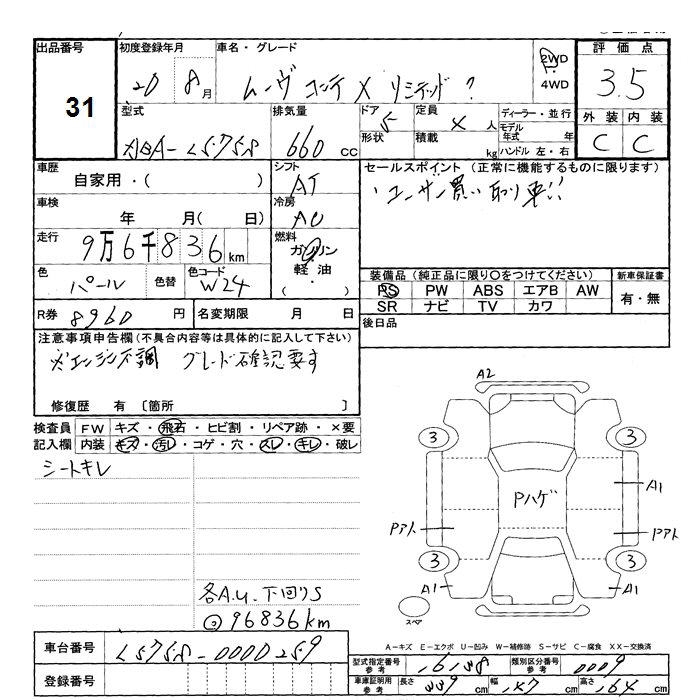 出品番号 31
初度登録年月 20 8月
車名・グレード ムーヴ コンテ X リミテッド ?
2WD
4WD
評価点 3.5
外装 内装
C C
型式 DBA-L575S
排気量 660 cc
ドア 5
形状
定員 4 人
積載 kg
ディーラー・並行
モデル年式 年
ハンドル 左・右
車歴 自家用・( )
シフト AT
車検 年 月( 日)
冷房 AC
走行 9万6千836km
燃料 ガソリン 軽油・( )
色 パール 色替 色コード W24
R券 8960円 名変期限 月 日
セールスポイント (正常に機能するものに限ります)
・ユーザー買い取り車!!
装備品 (純正品に限り○をつけてください) 新車保証書
PS PW ABS エアB AW
SR ナビ TV カワ
有・無
後日品
注意事項申告欄(不具合内容等は具体的に記入して下さい)
※エンジン不調 グレード確認要す
修復歴 有 〔箇所 〕
検査員 FW キズ・飛石・ヒビ割・リペア跡・×要
記入欄 内装 キズ・汚レ・コゲ・穴・スレ・キレ・破レ
シートキレ
各A.U. 下回りS
◎96836km
A2
3 3
A1
Pハゲ
Pアト Pアト
3 3
A1 A1
スペア
A-キズ E-エクボ U-凹み W-補修跡 S-サビ C-腐食 XX-交換済
車台番号 L575S-0000259
登録番号
型式指定番号 参考 16138 類別区分番号 参考 0009
車庫証明用 参考 長さ 339cm 幅 147cm 高さ 164cm